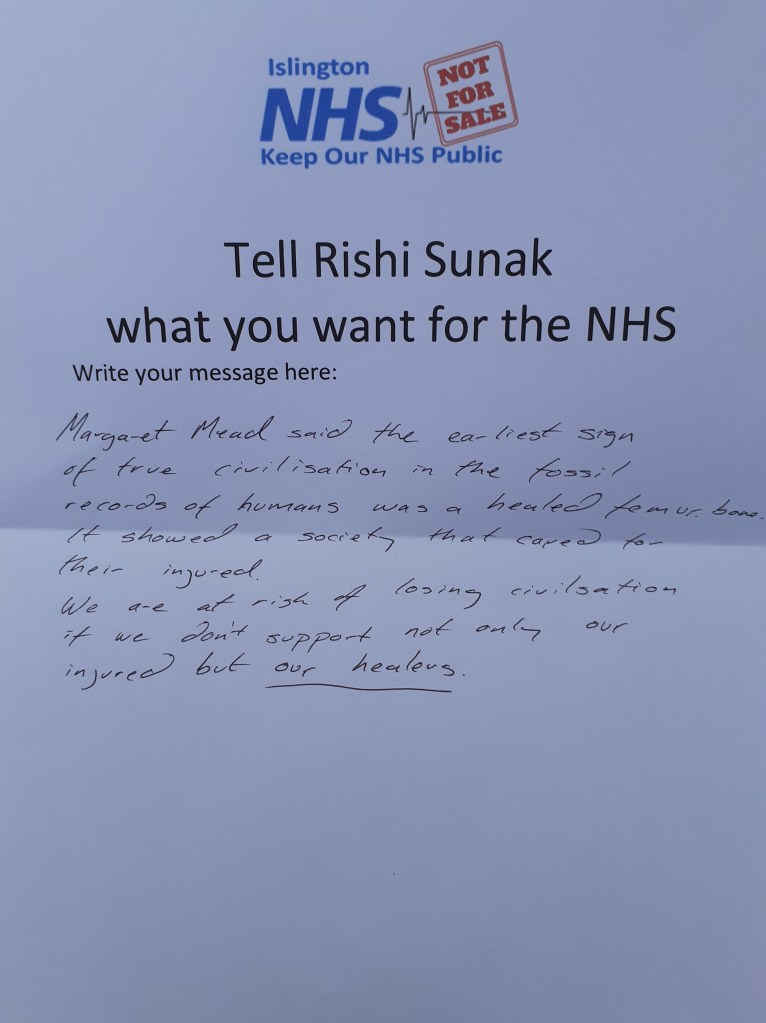 Islington
NHS
NOT
FOR
SALE
Keep Our NHS Public
Tell Rishi Sunak
what you want for the NHS
Write your message here:
Margaret Mead said the earliest sign
of true civilisation in the fossil
records of humans was a healed femur bone.
It showed a society that cared for
their injured.
We are at risk of losing civilsation
if we don't support not only our
injured but our healers.